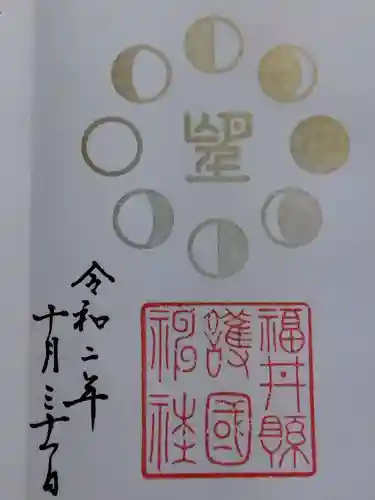 望
福井縣
護國
神社
令和二年
十月三十一日